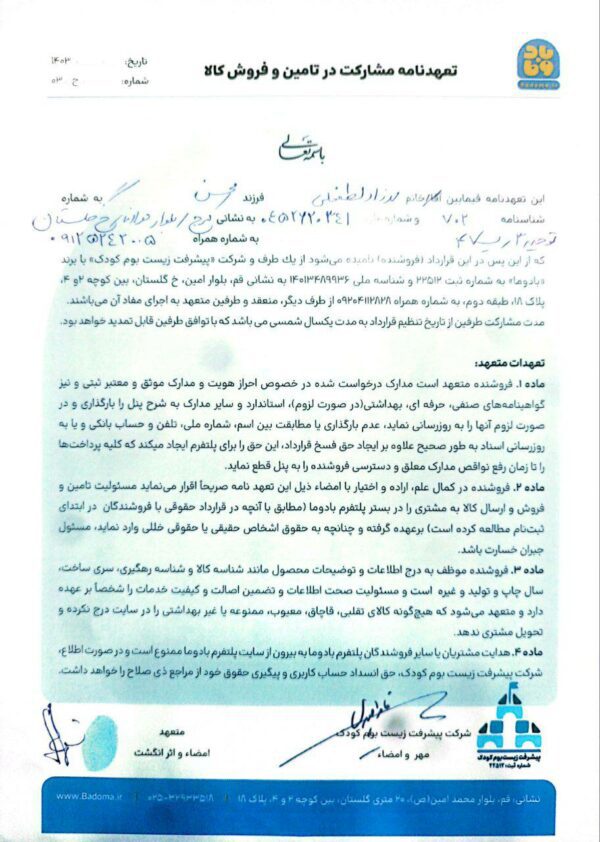 باد
وما
BADOMA.IR
تعهدنامه مشارکت در تامین و فروش کالا
تاریخ: ۱۴۰۳
شماره: ح ۰۳
باسمه تعالی
این تعهدنامه فیمابین خانم لطفعلی فرزند محسن به شماره
شناسنامه ۷۰۲ و شماره ملی به نشانی گلستان
توحید ۳ ۴۷ به شماره همراه
که از این پس در این قرارداد (فروشنده) نامیده می‌شود از یک طرف و شرکت «پیشرفت زیست بوم کودک» با برند
«بادوما» به شماره ثبت ۲۲۵۱۲ و شناسه ملی ۱۴۰۱۳۴۸۹۹۳۶ به نشانی قم، بلوار امین، خ گلستان، بین کوچه ۲ و ۴،
پلاک ۱۸، طبقه دوم، به شماره همراه ۰۹۲۰۴۱۱۲۸۲۸ از طرف دیگر، منعقد و طرفین متعهد به اجرای مفاد آن می‌باشند.
مدت مشارکت طرفین از تاریخ تنظیم قرارداد به مدت یکسال شمسی می باشد که با توافق طرفین قابل تمدید خواهد بود.
تعهدات متعهد:
ماده ۱. فروشنده متعهد است مدارک درخواست شده در خصوص احراز هویت و مدارک موثق و معتبر ثبتی و نیز
گواهینامه‌های صنفی، حرفه ای، بهداشتی(در صورت لزوم)، استاندارد و سایر مدارک به شرح پنل را بارگذاری و در
صورت لزوم آنها را به روزرسانی نماید، عدم بارگذاری یا مطابقت بین اسم، شماره ملی، تلفن و حساب بانکی و یا به
روزرسانی اسناد به طور صحیح علاوه بر ایجاد حق فسخ قرارداد، این حق را برای پلتفرم ایجاد میکند که کلیه پرداخت‌ها
را تا زمان رفع نواقص مدارک معلق و دسترسی فروشنده را به پنل قطع نماید.
ماده ۲. فروشنده در کمال علم، اراده و اختیار با امضاء ذیل این تعهد نامه صریحاً اقرار می‌نماید مسئولیت تامین و
فروش و ارسال کالا به مشتری را در بستر پلتفرم بادوما (مطابق با آنچه در قرارداد حقوقی با فروشندگان در ابتدای
ثبت‌نام مطالعه کرده است) برعهده گرفته و چنانچه به حقوق اشخاص حقیقی یا حقوقی خللی وارد نماید، مسئول
جبران خسارت باشد.
ماده ۳. فروشنده موظف به درج اطلاعات و توضیحات محصول مانند شناسه کالا و شناسه رهگیری، سری ساخت،
سال چاپ و تولید و غیره است و مسئولیت صحت اطلاعات و تضمین اصالت و کیفیت خدمات را شخصاً بر عهده
دارد و متعهد می‌شود که هیچ‌گونه کالای تقلبی، قاچاق، معیوب، ممنوعه یا غیر بهداشتی را در سایت درج نکرده و
تحویل مشتری ندهد.
ماده ۴. هدایت مشتریان یا سایر فروشندگان پلتفرم بادوما به بیرون از سایت پلتفرم بادوما ممنوع است و در صورت اطلاع،
شرکت پیشرفت زیست بوم کودک، حق انسداد حساب کاربری و پیگیری حقوق خود از مراجع ذی صلاح را خواهد داشت.
شرکت پیشرفت زیست بوم کودک
مهر و امضاء
متعهد
امضاء و اثر انگشت
پیشرفت زیست بوم کودک
شماره ثبت: ۲۲۵۱۲
نشانی: قم، بلوار محمد امین(ص)، ۲۰ متری گلستان، بین کوچه ۲ و ۴، پلاک ۱۸ | ۰۲۵-۳۲۹۳۳۵۱۸ | www.Badoma.ir